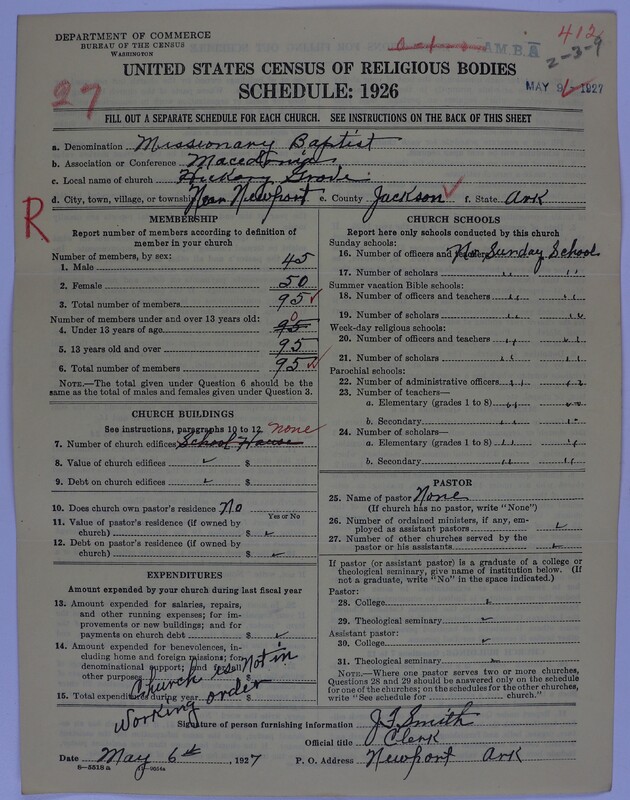 DEPARTMENT OF COMMERCE
BUREAU OF THE CENSUS
WASHINGTON
A.M.B.A
412
2-3-9
UNITED STATES CENSUS OF RELIGIOUS BODIES
SCHEDULE: 1926
MAY 9 - 1927
27
FILL OUT A SEPARATE SCHEDULE FOR EACH CHURCH. SEE INSTRUCTIONS ON THE BACK OF THIS SHEET
a. Denomination Missionary Baptist
b. Association or Conference Macedonia
c. Local name of church Hickory Grove
d. City, town, village, or township Near Newport e. County Jackson f. State Ark
R
MEMBERSHIP
Report number of members according to definition of
member in your church
Number of members, by sex:
1. Male 45
2. Female 50
3. Total number of members 95
Number of members under and over 13 years old:
4. Under 13 years of age 95 0
5. 13 years old and over 95
6. Total number of members 95
NOTE.—The total given under Question 6 should be
same as the total of males and females given under Question 3.
CHURCH BUILDINGS
See instructions, paragraphs 10 to 12. none
7. Number of church edifices School House
8. Value of church edifices $
9. Debt on church edifices $
10. Does church own pastor's residence No
Yes or No
11. Value of pastor's residence (if owned by
church) $
12. Debt on pastor's residence (if owned by
church) $
EXPENDITURES
Amount expended by your church during last fiscal year
13. Amount expended for salaries, repairs,
and other running expenses; for im-
provements or new buildings; and for
payments on church debt $
14. Amount expended for benevolences, in-
cluding home and foreign missions; for
denominational support; and for all
other purposes $
15. Total expenditures during year $
Church is not in
working order
CHURCH SCHOOLS
Report here only schools conducted by this church
Sunday schools:
16. Number of officers and teachers No Sunday School
17. Number of scholars " "
Summer vacation Bible schools:
18. Number of officers and teachers " "
19. Number of scholars " "
Week-day religious schools:
20. Number of officers and teachers " "
21. Number of scholars " "
Parochial schools:
22. Number of administrative officers " "
23. Number of teachers—
a. Elementary (grades 1 to 8) " "
b. Secondary " "
24. Number of scholars—
a. Elementary (grades 1 to 8) " "
b. Secondary " "
PASTOR
25. Name of pastor None
(If church has no pastor, write "None")
26. Number of ordained ministers, if any, em-
ployed as assistant pastors
27. Number of other churches served by the
pastor or his assistants
If pastor (or assistant pastor) is a graduate of a college or
theological seminary, give name of institution below. (If
not a graduate, write "No" in the space indicated.)
Pastor:
28. College
29. Theological seminary
Assistant pastor:
30. College
31. Theological seminary
NOTE.—Where one pastor serves two or more churches,
Questions 28 and 29 should be answered only on the schedule
for one of the churches; on the schedules for the other churches,
write "See schedule for church."
Signature of person furnishing information J F Smith
Official title Clerk
Date May 6th, 1927 P. O. Address Newport Ark
8—5518 a